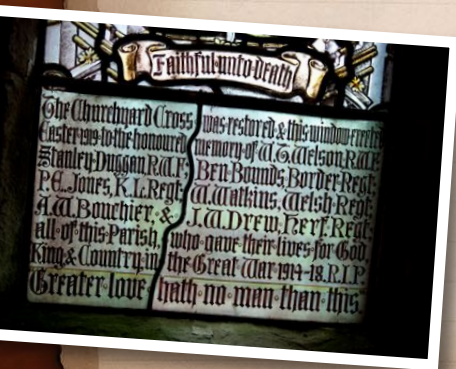 Faithful unto death
The Churchyard Cross was restored & this window erected
Easter 1919 to the honoured memory of W.G. Welson, R.W.F.
Stanley Duggan R.W.F. Ben Bounds, Border Regt.
P.E. Jones, K.L. Regt. W. Watkins, Welsh Regt.
A.W. Bouchier, & J.W. Drew, Herf. Regt.
all of this Parish, who gave their lives for God,
King & Country in the Great War 1914-18. R.I.P.
Greater love hath no man than this.